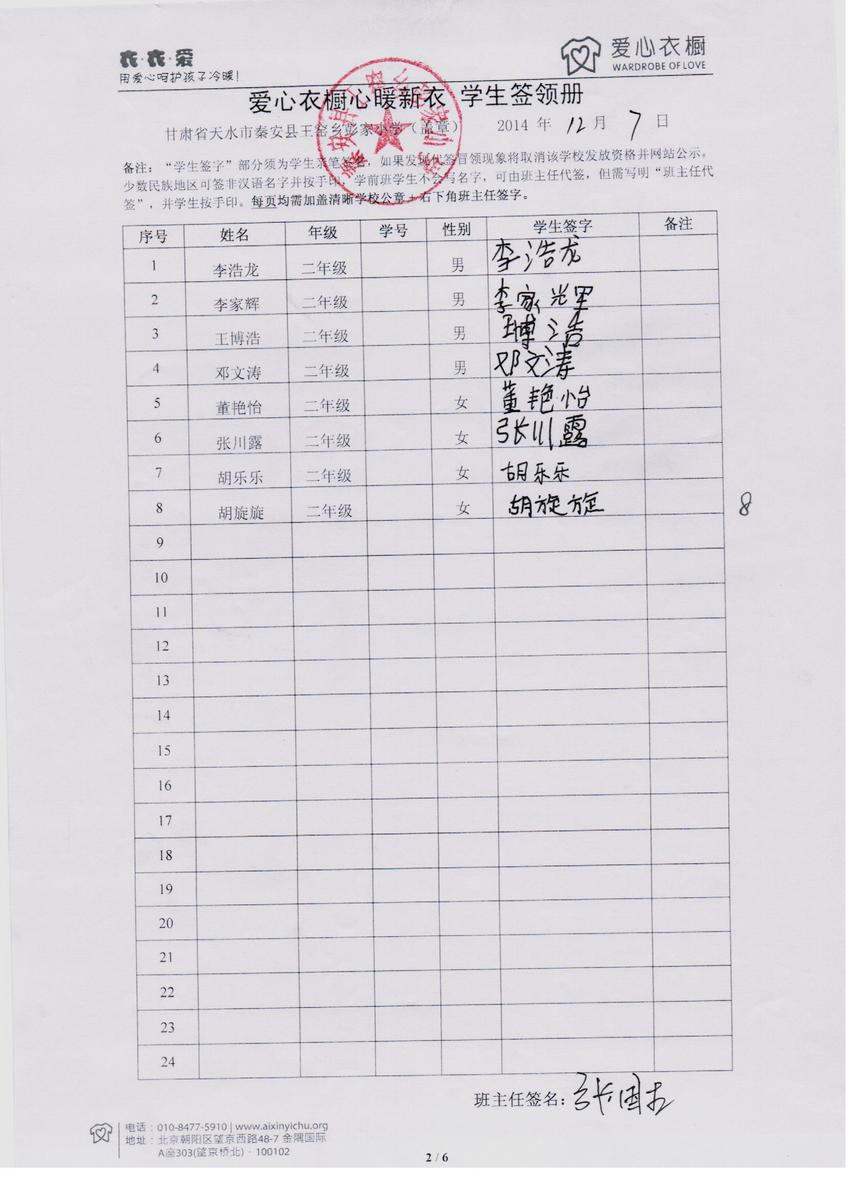 衣·衣·爱
用爱心呵护孩子冷暖!
爱心衣橱
WARDROBE OF LOVE
爱心衣橱心暖新衣 学生签领册
甘肃省天水市秦安县王窑乡彭家小学（盖章） 2014 年 12 月 7 日
备注：“学生签字”部分须为学生亲笔签名，如果发现代签冒领现象将取消该学校发放资格并网站公示。
少数民族地区可签非汉语名字并按手印。学前班学生不会写名字，可由班主任代签，但需写明“班主任代
签”，并学生按手印。每页均需加盖清晰学校公章+右下角班主任签字。
序号 姓名 年级 学号 性别 学生签字 备注
1 李浩龙 二年级 男 李浩龙
2 李家辉 二年级 男 李家辉
3 王博浩 二年级 男 王博浩
4 邓文涛 二年级 男 邓文涛
5 董艳怡 二年级 女 董艳怡
6 张川露 二年级 女 张川露
7 胡乐乐 二年级 女 胡乐乐
8 胡旋旋 二年级 女 胡旋旋 8
9
10
11
12
13
14
15
16
17
18
19
20
21
22
23
24
班主任签名：张国
电话：010-8477-5910 | www.aixinyichu.org
地址：北京朝阳区望京西路48-7 金隅国际
A座303(望京桥北) · 100102
2 / 6